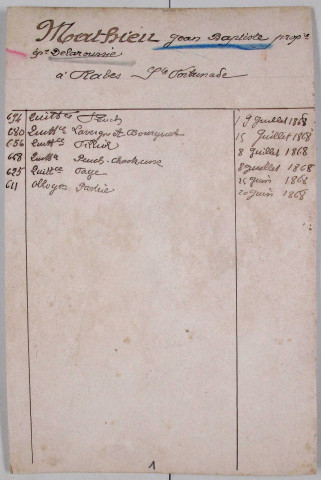 Mathieu Jean Baptiste prop.re
ép.x Delaroussie
à Rabes Ste Fortunade
694 Quittce Puech 19 Juillet 1868
680 Quittce Lavergne et Bourguet 15 Juillet 1868
656 Quittces Tillier 8 Juillet 1868
668 Quittce 8 Juillet 1868
675 Quittce Faye 8 Juillet 1868
25 Juin 1868
611 20 Juin 1868
1